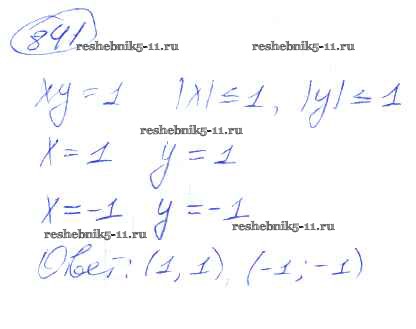 841
reshebnik5-11.ru reshebnik5-11.ru
xy = 1 |x| ≤ 1, |y| ≤ 1
reshebnik5-11.ru
x = 1 y = 1
x = -1 y = -1
reshebnik5-11.ru reshebnik5-11.ru
Ответ: (1, 1), (-1; -1)